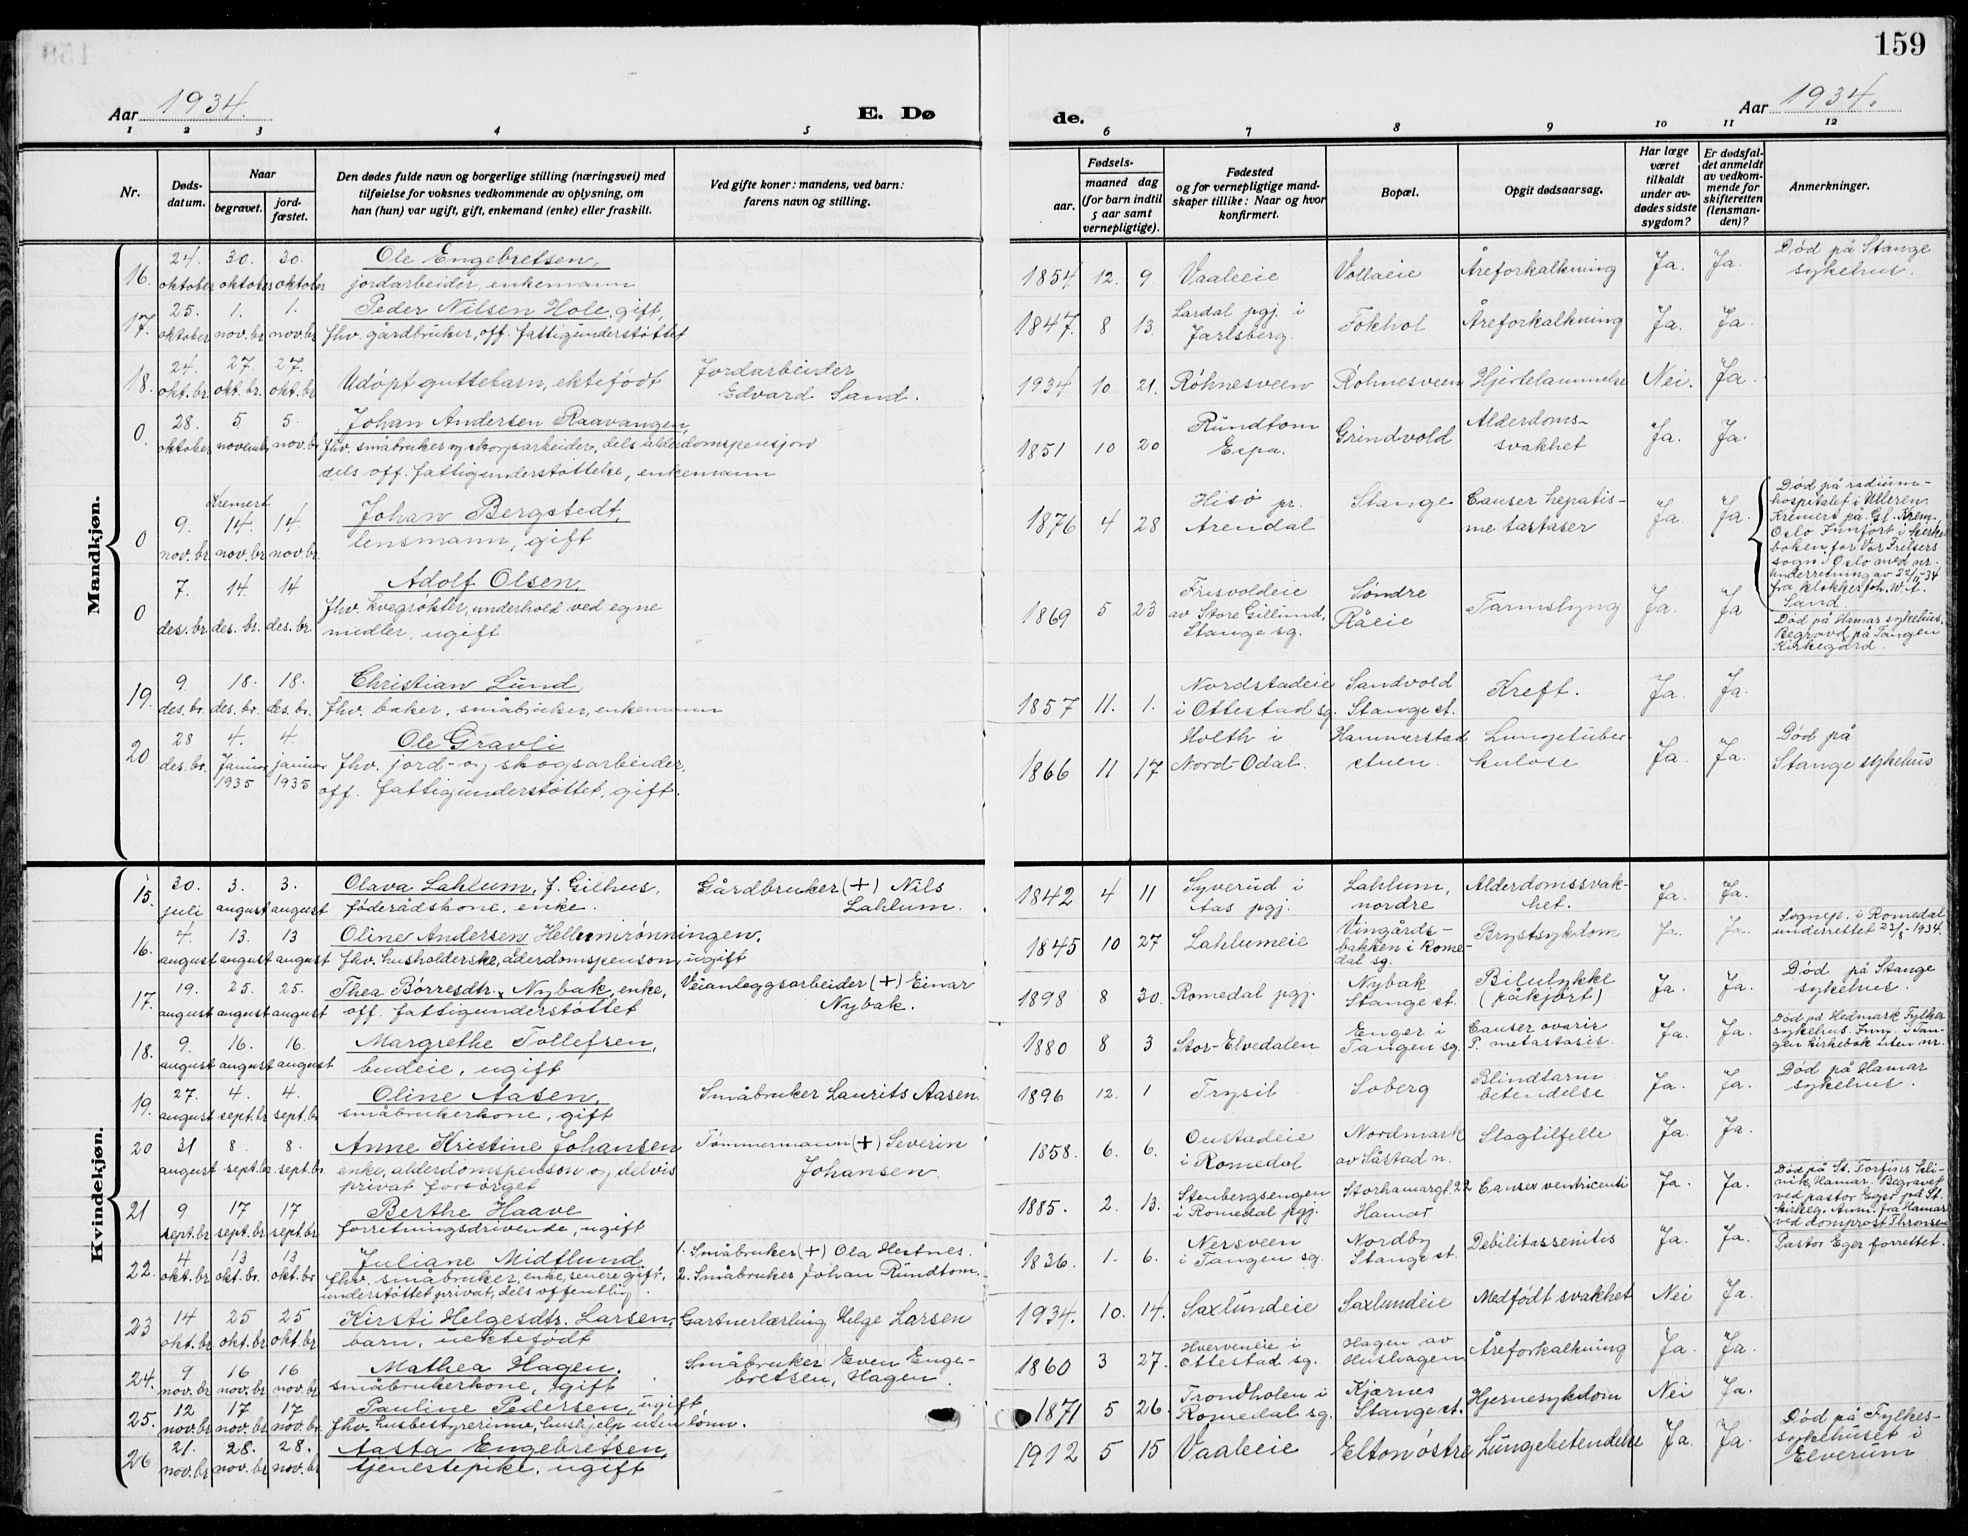 159
Aar 1934.
E. Dø
de.
Aar 1934.
1 2 3 4 5 6 7 8 9 10 11 12
Nr.
Døds-
datum.
Naar
begravet.
jord-
fæstet.
Den dødes fulde navn og borgerlige stilling (næringsvei) med
tilføielse for voksnes vedkommende av oplysning, om
han (hun) var ugift, gift, enkemand (enke) eller fraskilt.
Ved gifte koner: mandens, ved barn:
farens navn og stilling.
Fødsels-
aar.
maaned dag
(for barn indtil
5 aar samt
vernepligtige).
Fødested
og for vernepligtige mand-
skaper tillike: Naar og hvor
konfirmert.
Bopæl.
Opgit dødsaarsag.
Har læge
været
tilkaldt
under av-
dødes sidste
sygdom?
Er dødsfal-
det anmeldt
av vedkom-
mende for
skifteretten
(lensman-
den)?
Anmerkninger.
Mandkjøn.
16. 24. oktober 30. oktober 30. oktober
Ole Engebretsen,
jordarbeider, enkemann
1854 12. 9. Vaaleie Vollaeie Åreforkalkning Ja. Ja.
Død på Stange
sykehus.
17. 25. oktober 1. nov.br 1. nov.br
Peder Nilsen Hole, gift,
fhv. gårdbruker, off. fattigunderstøttet
1847. 8 13. Lardal pgj. i
Jarlsberg. Fokhol Åreforkalkning Ja. Ja.
18. 24. okt.br. 27. okt.br. 27. okt.br.
Udøpt guttebarn, ektefødt
Jordarbeider
Edvard Sand.
1934 10 21. Røhnesveen Røhnesveen Hjertelammelse Nei. Ja.
0. 28. oktober 5 novemb. 5. nov.br
Johan Andersen Raavangen,
fhv. småbruker og skogsarbeider, dels alderdomspensjon
dels off. fattigunderstøttelse, enkemann
1851 10 20 Rundtom
Espa. Grindvold Alderdoms-
svakhet Ja. Ja.
0 9. nov.br Kremert 14. nov.br 14 nov.br
Johan Bergstedt,
lensmann, gift
1876 4 28 Hisø pr.
Arendal Stange Canser hepatis-
me tastaser Ja. Ja.
Død på radium-
hospitalet i Ulleren.
Kremert på Gl. Krem.
Oslo Innført i kirke
boken for Vor Frelsers
sogn i Oslo med nr.
Underretning av 22/11-34
fra klokker Joh. W. A.
Sand.
0 7. des.br 14. des.br. 14 des.br
Adolf Olsen,
fhv. kvegrøkter, underhold ved egne
midler, ugift
1869 5 23 Frisvoldeie
av Store Gillund,
Stange sg. Søndre
Råeie Tarmslyng Ja. Ja
Død på Hamar sykehus.
Begravd på Tangen
Kirkegård.
19. 9. des.br. 18. des.br. 18. des.br.
Christian Lund,
fhv. baker, småbruker, enkemann
1857 11. 1. Nordstadeie
i Ottestad sg. Sandvold
Stange st. Kreft. Ja. Ja.
20 28 des.br. 4. Januar 1935 4. januar 1935
Ole Gravli
fhv. jord- og skogsarbeider,
off. fattigunderstøttet, gift.
1866 11 17 Holth i
Nord-Odal. Hammerstad
stuen. Lungetuber
kulose Ja. Ja.
Død på
Stange sykehus
Kvindekjøn.
15. 30. juli 3. august 3. august
Olava Lahlum, f. Gilhus,
føderådskone, enke.
Gårdbruker (+) Nils
Lahlum.
1842 4 11 Syverud i
Aas pgj. Lahlum,
nordre Alderdomssvak-
het. Ja. Ja.
16. 4. august 13. august 13 august
Oline Andersen Hellumrønningen,
fhv. husholderske, alderdomspenson, ugift
1845 10 27 Lahlumeie Vingårds-
bakken i Rome-
dal sg. Brystsykdom Ja. Ja.
Sognep. i Romedal
underrettet 23/8-1934.
17. 19. august 25. august 25. august
Thea Børresdtr. Nybak, enke,
off. fattigunderstøttet
Veianleggsarbeider (+) Einar
Nybak.
1898 8 30. Romedal pgj. Nybak
Stange st. Bilulykke
(påkjørt) Ja. Ja.
Død på Stange
sykehus.
18. 9. august 16. august 16. august
Margrethe Tollefsen,
budeie, ugift
1880 8 3 Stor-Elvedalen Enger i
Tangen sg. Canser ovarie
P. metastasis. Ja. Ja.
Død på Hedmark Fylkes
sykehus. Inng. i Tan-
gen kirkebok uten nr.
19. 27. august 4. sept.br 4. sept.br
Oline Aasen,
småbrukerkone, gift
Småbruker Laurits Aasen.
1896 12. 1 Trysil Soberg Blindtarm
betendelse Ja. Ja.
Død på Hamar
sykehus.
20 31 august 8. sept.br 8. sept.br
Anne Kristine Johansen
enke, alderdomspenson og delvis
privat forsørget
Tømmermann (+) Severin
Johansen.
1858. 6. 6. Oustadeie
i Romedal Nordmark
av Såstad n. Slagtilfelle Ja. Ja.
21 9 sept.br 17 sept.br 17 sept.br
Berthe Haave
forretningsdrivende, ugift
1885. 2. 13. Stenbergsengen
i Romedal pgj. Storhamargt. 22
Hamar Canser ventricenti Ja. Ja.
Død på St. Torfins kli-
nik, Hamar. Begravet
ved pastor Eger på St.
kirkeg. Anm. fra Hamar
ved domprost Thronsen
Pastor Eger forrettet.
22. 4 okt.br. 13 okt.br. 13 okt.br
Juliane Midtlund
fhv. småbruker, enke, senere gift,
understøttet privat, dels offentlig.
1. Småbruker (+) Ola Hestnes.
2. Småbruker Johan Rundtom.
1836. 1. 6. Nersveen
i Tangen sg. Nordby
Stange st. Debilitassenitis Ja. Ja.
23 14 okt.br. 25 okt.br. 25 okt.br
Kirsti Helgesdtr. Larsen,
barn, uektefødt
Gartnerlærling Helge Larsen
1934. 10. 14. Saxlundeie Saxlundeie Medfødt svakhet Nei Ja.
24. 9 nov.br 16 nov.br 16 nov.br
Mathea Hagen.
småbrukerkone, gift
Småbruker Even Enge-
bretsen, Hagen.
1860 3 27. Hverveneie i
Ottestad sg. Hagen av
Hushagen Åreforkalkning Ja. Ja.
25. 12 nov.br 17 nov.br 17 nov.br
Pauline Pedersen, ugift,
fhv. husbestyrerinne, hushjelp uten lønn.
1871 5 26. Trondholen i
Romedal sg. Kjærnes
Stange st. Hjernesykdom Nei Ja.
26 21. nov.br 28. nov.br 28. nov.br
Aasta Engebretsen,
tjenestepike, ugift
1912 5 15 Vaaleie Elton østre Lungebetendelse Ja. Ja.
Død på Fylkes-
sykehuset i
Elverum